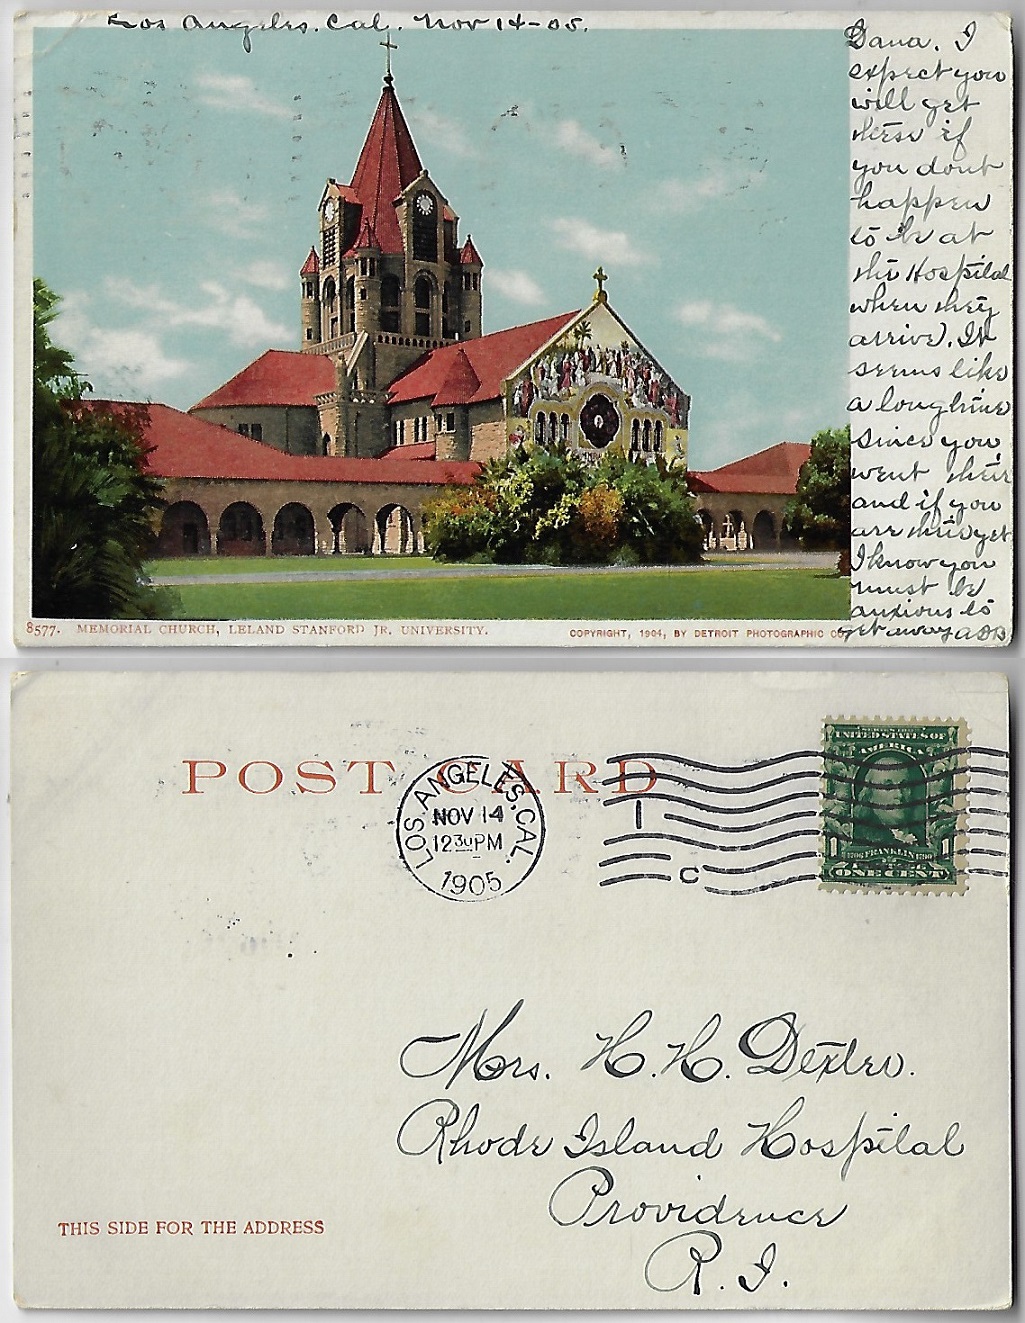 Los Angeles. Cal. Nov 14-05.
Dana. I
expect you
will get
these if
you dont
happen
to be at
the Hospital
when they
arrive. It
seems like
a long time
since you
went their
and if you
are there yet
I know you
must be
anxious to
get away ADB
8577. MEMORIAL CHURCH, LELAND STANFORD JR. UNIVERSITY.
COPYRIGHT, 1904, BY DETROIT PHOTOGRAPHIC CO.
POST CARD
LOS ANGELES, CAL.
NOV 14
1230 PM
1905
I
C
UNITED STATES OF
AMERICA
1706 FRANKLIN 1790
1 1
ONE CENT
Mrs. H. H. Dexter.
Rhode Island Hospital
Providence
R. I.
THIS SIDE FOR THE ADDRESS